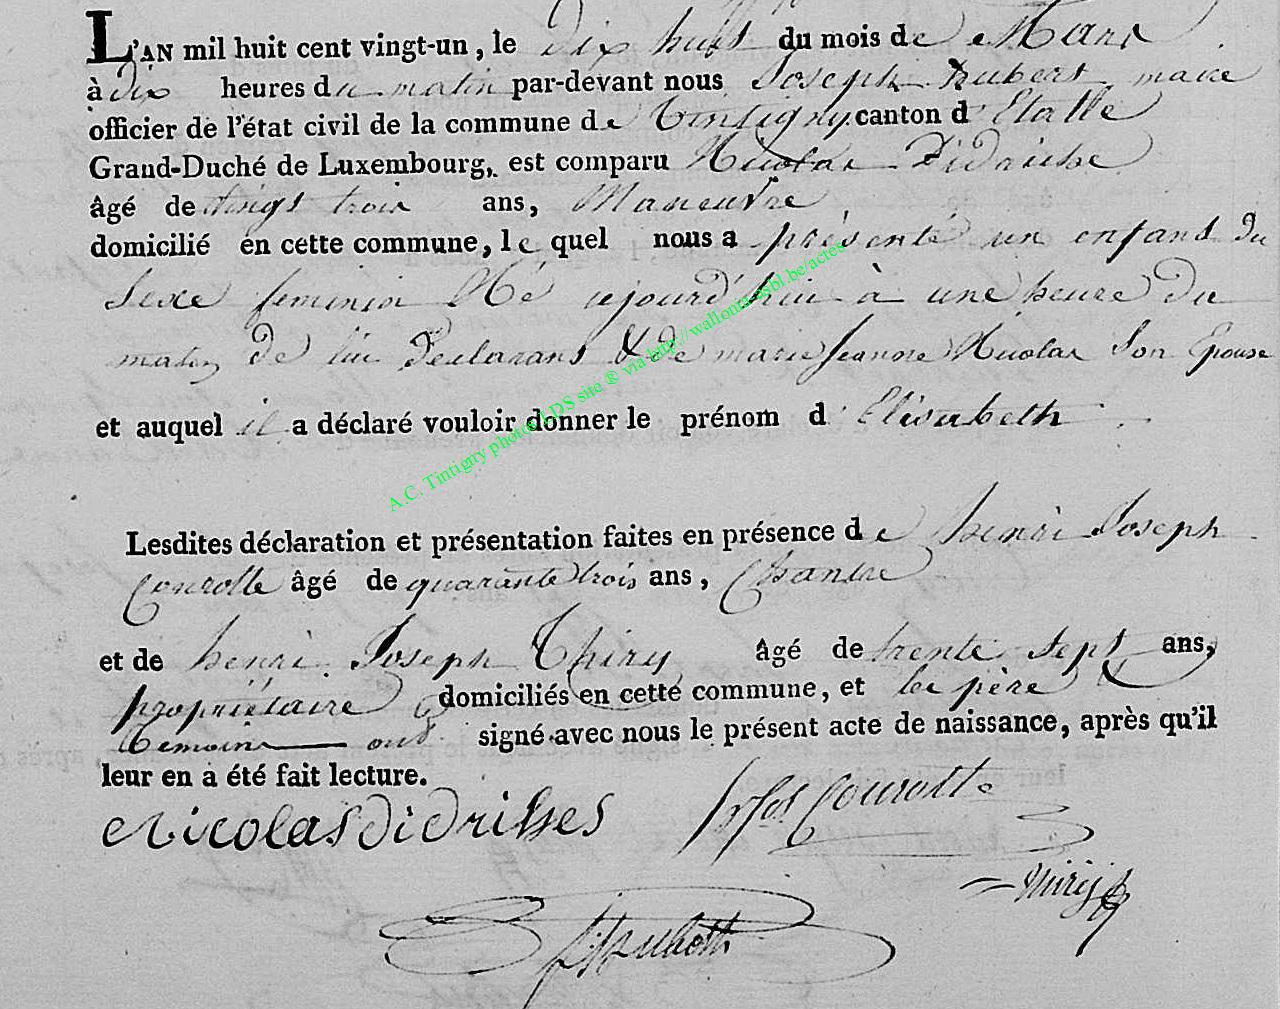 L'AN mil huit cent vingt-un, le dix huit du mois de Mars
à dix heures du matin par-devant nous Joseph hubert maire
officier de l'état civil de la commune de Tintigny canton d'Etalle
Grand-Duché de Luxembourg, est comparu Nicolas Didriche
âgé de vingt trois ans, Maneuvre
domicilié en cette commune, le quel nous a présenté un enfant du
Sexe feminin Né cejourd'hui à une heure du
matin de lui Declarant & de marie jeanne Nicolas Son Epouse
et auquel il a déclaré vouloir donner le prénom d'Elisabeth
A.C. Tintigny photos LDS site ® via http://wallonia-asbl.be/actes
Lesdites déclaration et présentation faites en présence de henri Joseph
Courotte âgé de quarante trois ans, Chantre
et de henri Joseph Thiry âgé de trente sept ans,
propriétaire domiciliés en cette commune, et les père &
temoins ont signé avec nous le présent acte de naissance, après qu'il
leur en a été fait lecture.
Nicolas didrisches Courotte
thiry
hubert